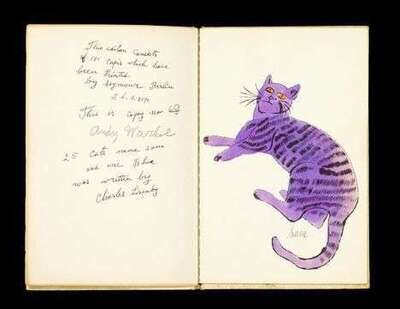 This edition consists
of copies which have
been printed
by Seymour Berlin
This is copy no
Andy Warhol
25 cats name sam
and one Blue
was written by
Charles Lisanby
Sam